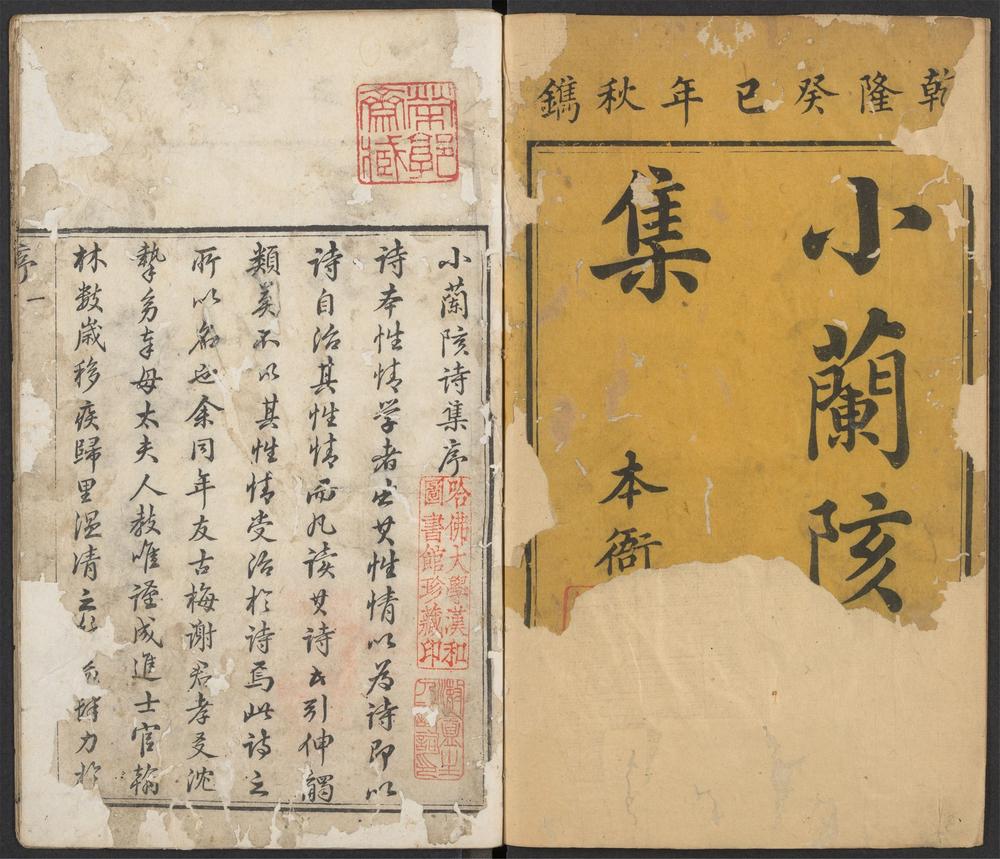 乾隆癸巳年秋鐫
小蘭陔
集
本衙
小蘭陔詩集序
詩本性情学者出其性情以為詩即以
詩自治其性情而凡读其詩者引伸觸
類莫不以其性情受治於詩焉此詩之
所以名也余同年友古梅謝君孝友沈
摯勇奉母太夫人教唯謹成進士官翰
林数歲移疾歸里温清之
力於
序一
哈佛大學漢和
圖書館珍藏印